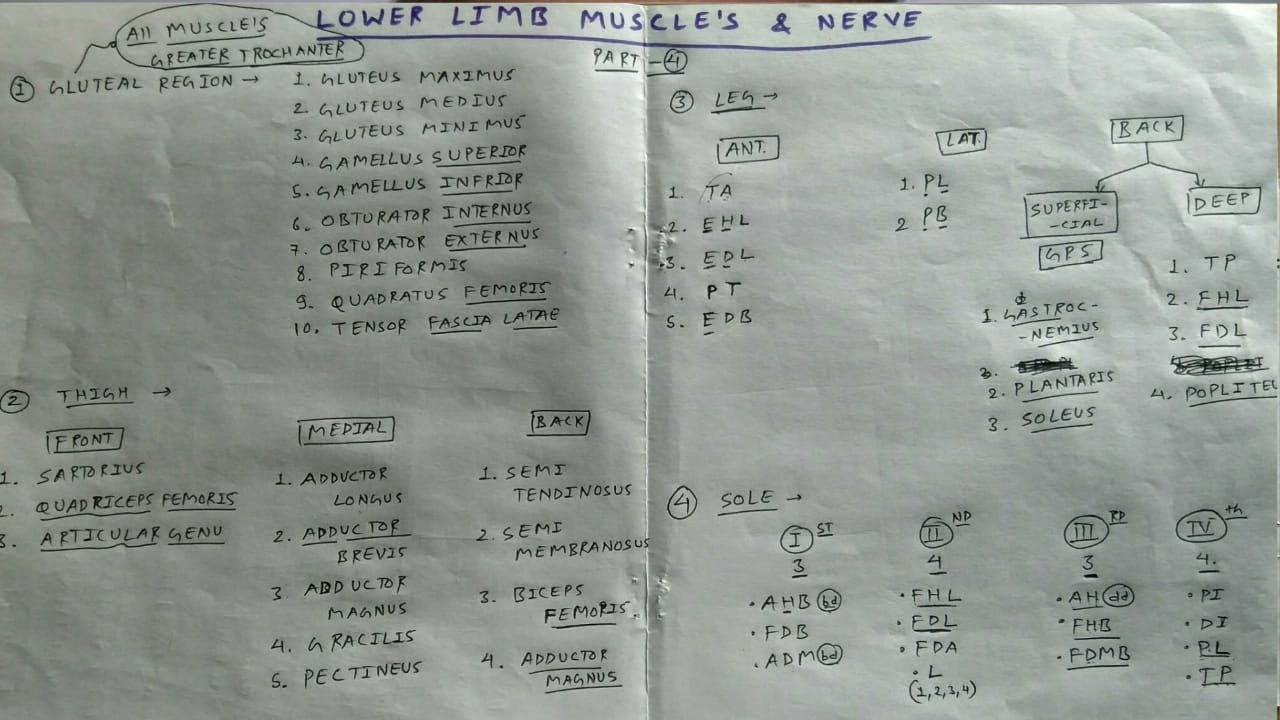 LOWER LIMB MUSCLE'S & NERVE
All MUSCLE'S
GREATER TROCHANTER
PART - 4
1 GLUTEAL REGION →
1. GLUTEUS MAXIMUS
2. GLUTEUS MEDIUS
3. GLUTEUS MINIMUS
4. GAMELLUS SUPERIOR
5. GAMELLUS INFRIOR
6. OBTURATOR INTERNUS
7. OBTURATOR EXTERNUS
8. PIRIFORMIS
9. QUADRATUS FEMORIS
10. TENSOR FASCIA LATAE
2 THIGH →
FRONT
1. SARTORIUS
2. QUADRICEPS FEMORIS
3. ARTICULAR GENU
MEDIAL
1. ADDUCTOR
LONGUS
2. ADDUCTOR
BREVIS
3 ADDUCTOR
MAGNUS
4. GRACILIS
5. PECTINEUS
BACK
1. SEMI
TENDINOSUS
2. SEMI
MEMBRANOSUS
3. BICEPS
FEMORIS.
4. ADDUCTOR
MAGNUS
3 LEG →
ANT.
1. TA
2. EHL
3. EDL
4. PT
5. EDB
LAT.
1. PL
2 PB
BACK
SUPERFI-
-CIAL
GPS
1. GASTROC-
-NEMIUS
2. PLANTARIS
3. SOLEUS
DEEP
1. TP
2. FHL
3. FDL
4. POPLITEU
4 SOLE →
I ST
3
• AHB bd
• FDB
• ADM bd
II ND
4
• FHL
• FDL
• FDA
• L
(1,2,3,4)
III RD
3
• AH dd
• FHB
• FDMB
IV th
4.
• PI
• DI
• PL
• TP